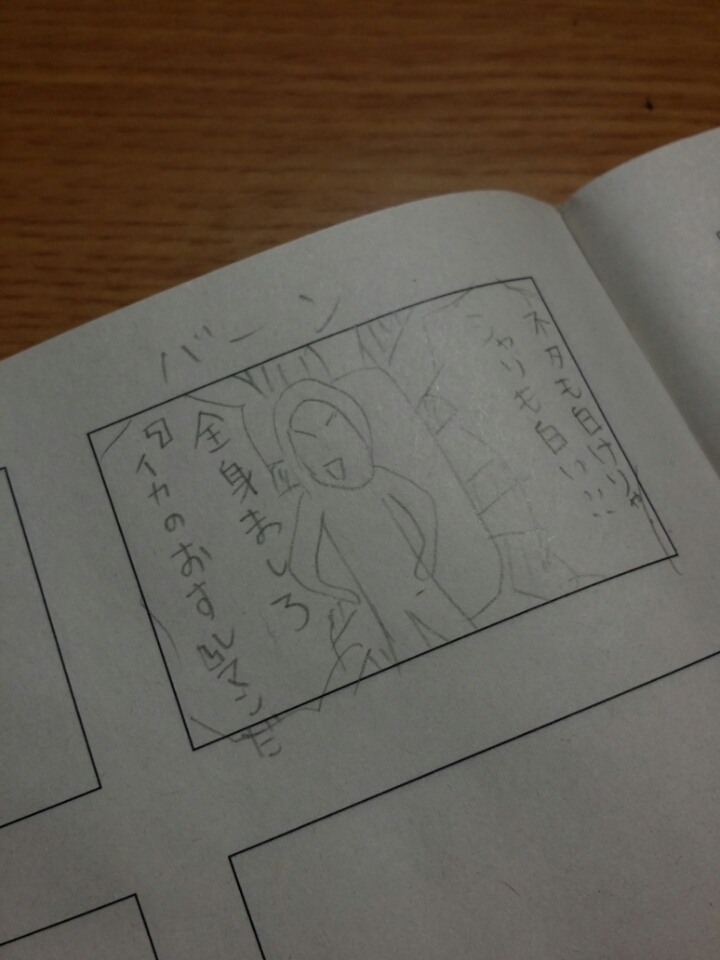 バーン
ネタも白けりゃ
シャリも白い!!
全身ましろ
白イカのおすしマンだ